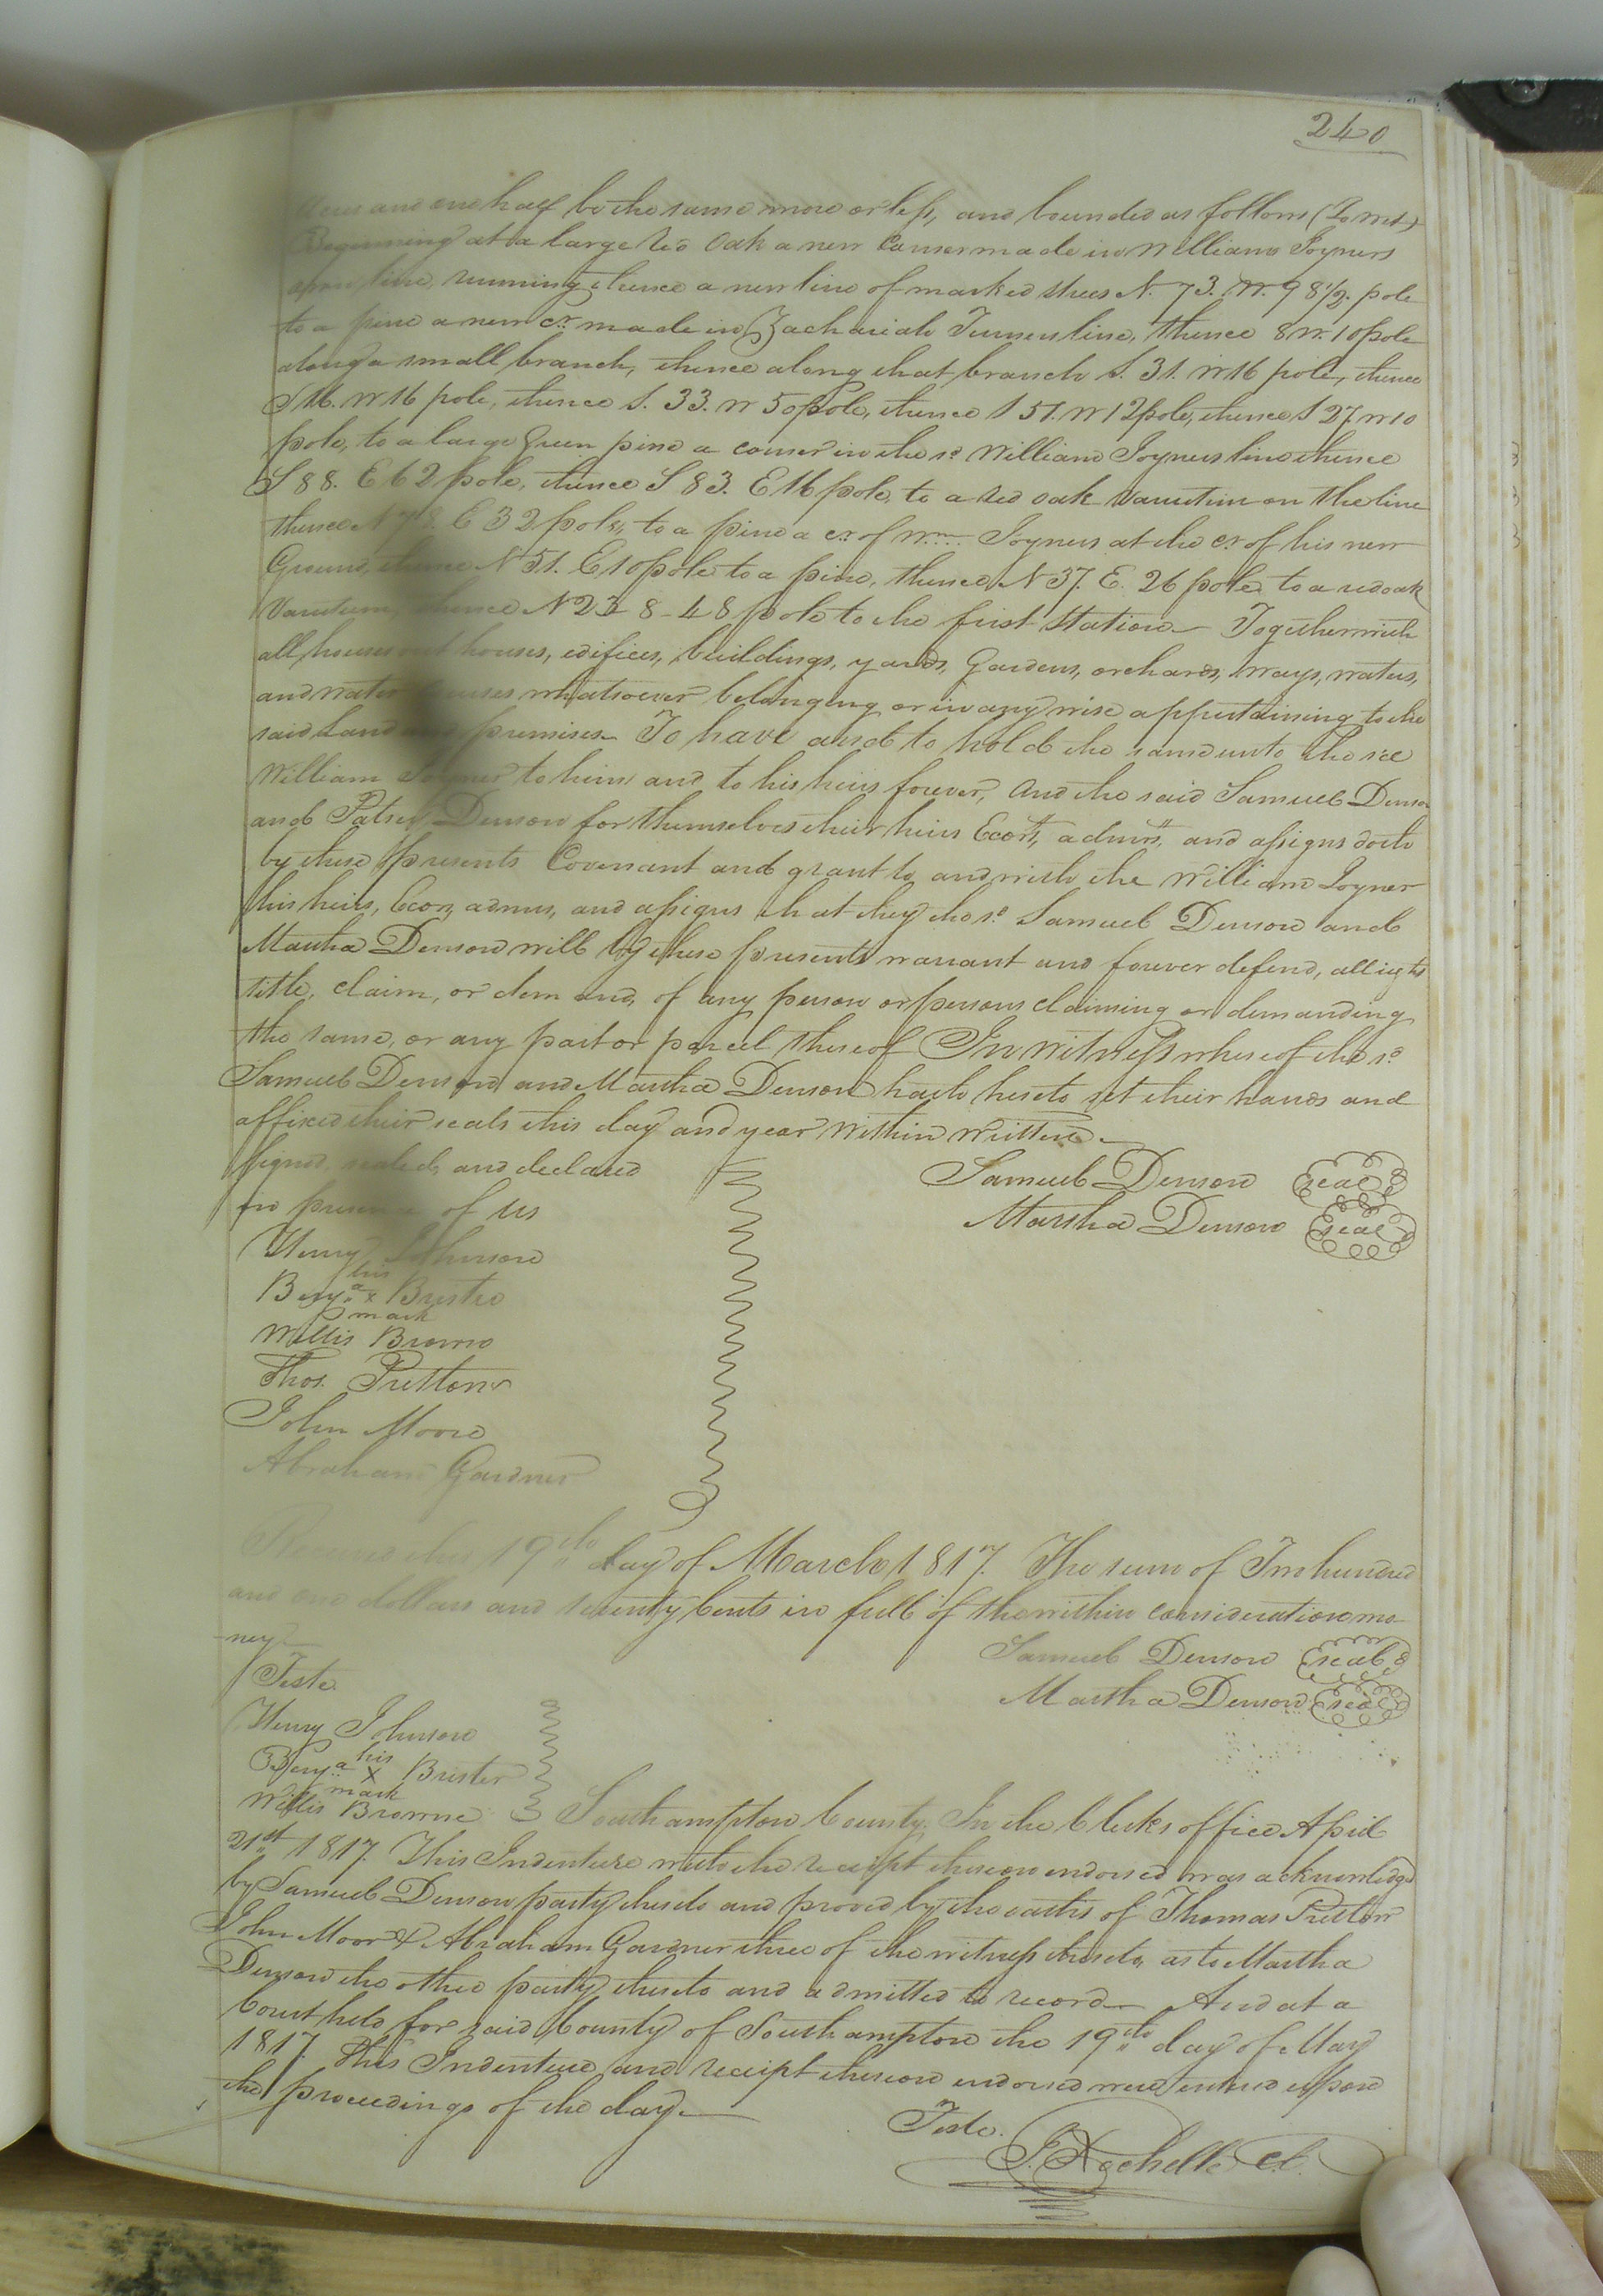 240
Acres and one half be the same more or less, and bounded as follows (To wit)
Beginning at a large Red Oak a new Corner made in William Joyners
line, running thence a new line of marked trees N. 73. W. 98 1/2. pole
to a pine a new cr. made in Zachariah Turners line, thence 8 W. 10 pole
along a small branch, thence along that branch S. 31. W 16 pole, thence
S 16. W 16 pole, thence S. 33. W 50 pole, thence S 51. W 12 pole, thence S 27. W 10
pole, to a large Green pine a corner in the sd. William Joyners line thence
S 88. E 62 pole, thence S 83. E 16 pole, to a red oak on the line
thence N 78. E 32 pole, to a pine a cr. of Wm. Joyners at the cr. of his new
Ground, thence N 51. E 10 pole to a pine, thence N 37. E. 26 pole to a red oak
thence N 23 8-48 pole to the first Station Together with
all houses out houses, edifices, buildings, yards, Gardens, orchards, ways, waters,
and water courses whatsoever belonging or in any wise appertaining to the
said Land and premises To have and to hold the same unto the sd
William Joyner to him and to his heirs forever, And the said Samuel Denson
and Patsey Denson for themselves their heirs Ecors, admrs, and assigns doth
by these presents Covenant and grant to and with the William Joyner
his heirs, Ecors, admrs, and assigns that they the sd. Samuel Denson and
Martha Denson will by these presents warrant and forever defend, all right
title, claim, or demand, of any person or persons claiming or demanding
the same, or any part or parcel thereof In Witness whereof the sd
Samuel Denson and Martha Denson hath hereto set their hands and
affixed their seals this day and year within written
Signed, sealed, and declared
in presence of us
Samuel Denson seal
Martha Denson seal
Henry Johnson
his
Benja. x Brister
mark
Willis Browne
Thos. Pretlow
John Moore
Abraham Gardner
Received the 19th day of March 1817. The sum of Two hundred
and one dollars and seventy Cents in full of the within consideration mo
ney
Samuel Denson seal
Martha Denson seal
Teste
Henry Johnson
his
Benja. x Brister
mark
Willis Browne
Southampton County. In the Clerks office April
21st 1817. This Indenture with the receipt thereon endorsed was acknowledged
by Samuel Denson party thereto and proved by the oaths of Thomas Pretlow
John Moor & Abraham Gardner three of the witness thereto, as to Martha
Denson the other party thereto and admitted to record And at a
Court held for said County of Southampton the 19th day of May
1817. This Indenture and receipt thereon endorsed were entered upon
the proceedings of the day.
Teste.
J. Rochelle Cl.